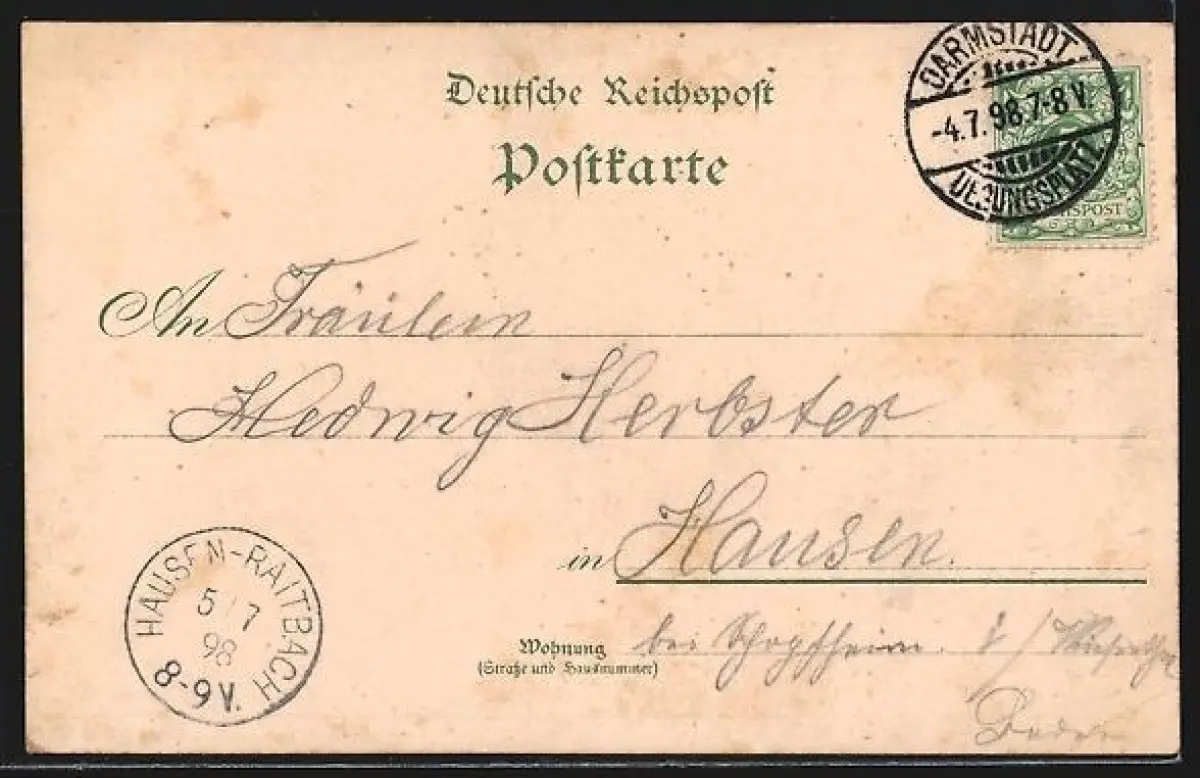 Deutsche Reichspost
Postkarte
DARMSTADT
-4.7.98.7-8V.
UEBUNGSPLATZ
REICHSPOST
An Fräulein
Hedwig Herbster
in Hausen.
Wohnung
(Straße und Hausnummer)
bei Schopfheim.
Baden
HAUSEN-RAITBACH
5/7
98
8-9V.